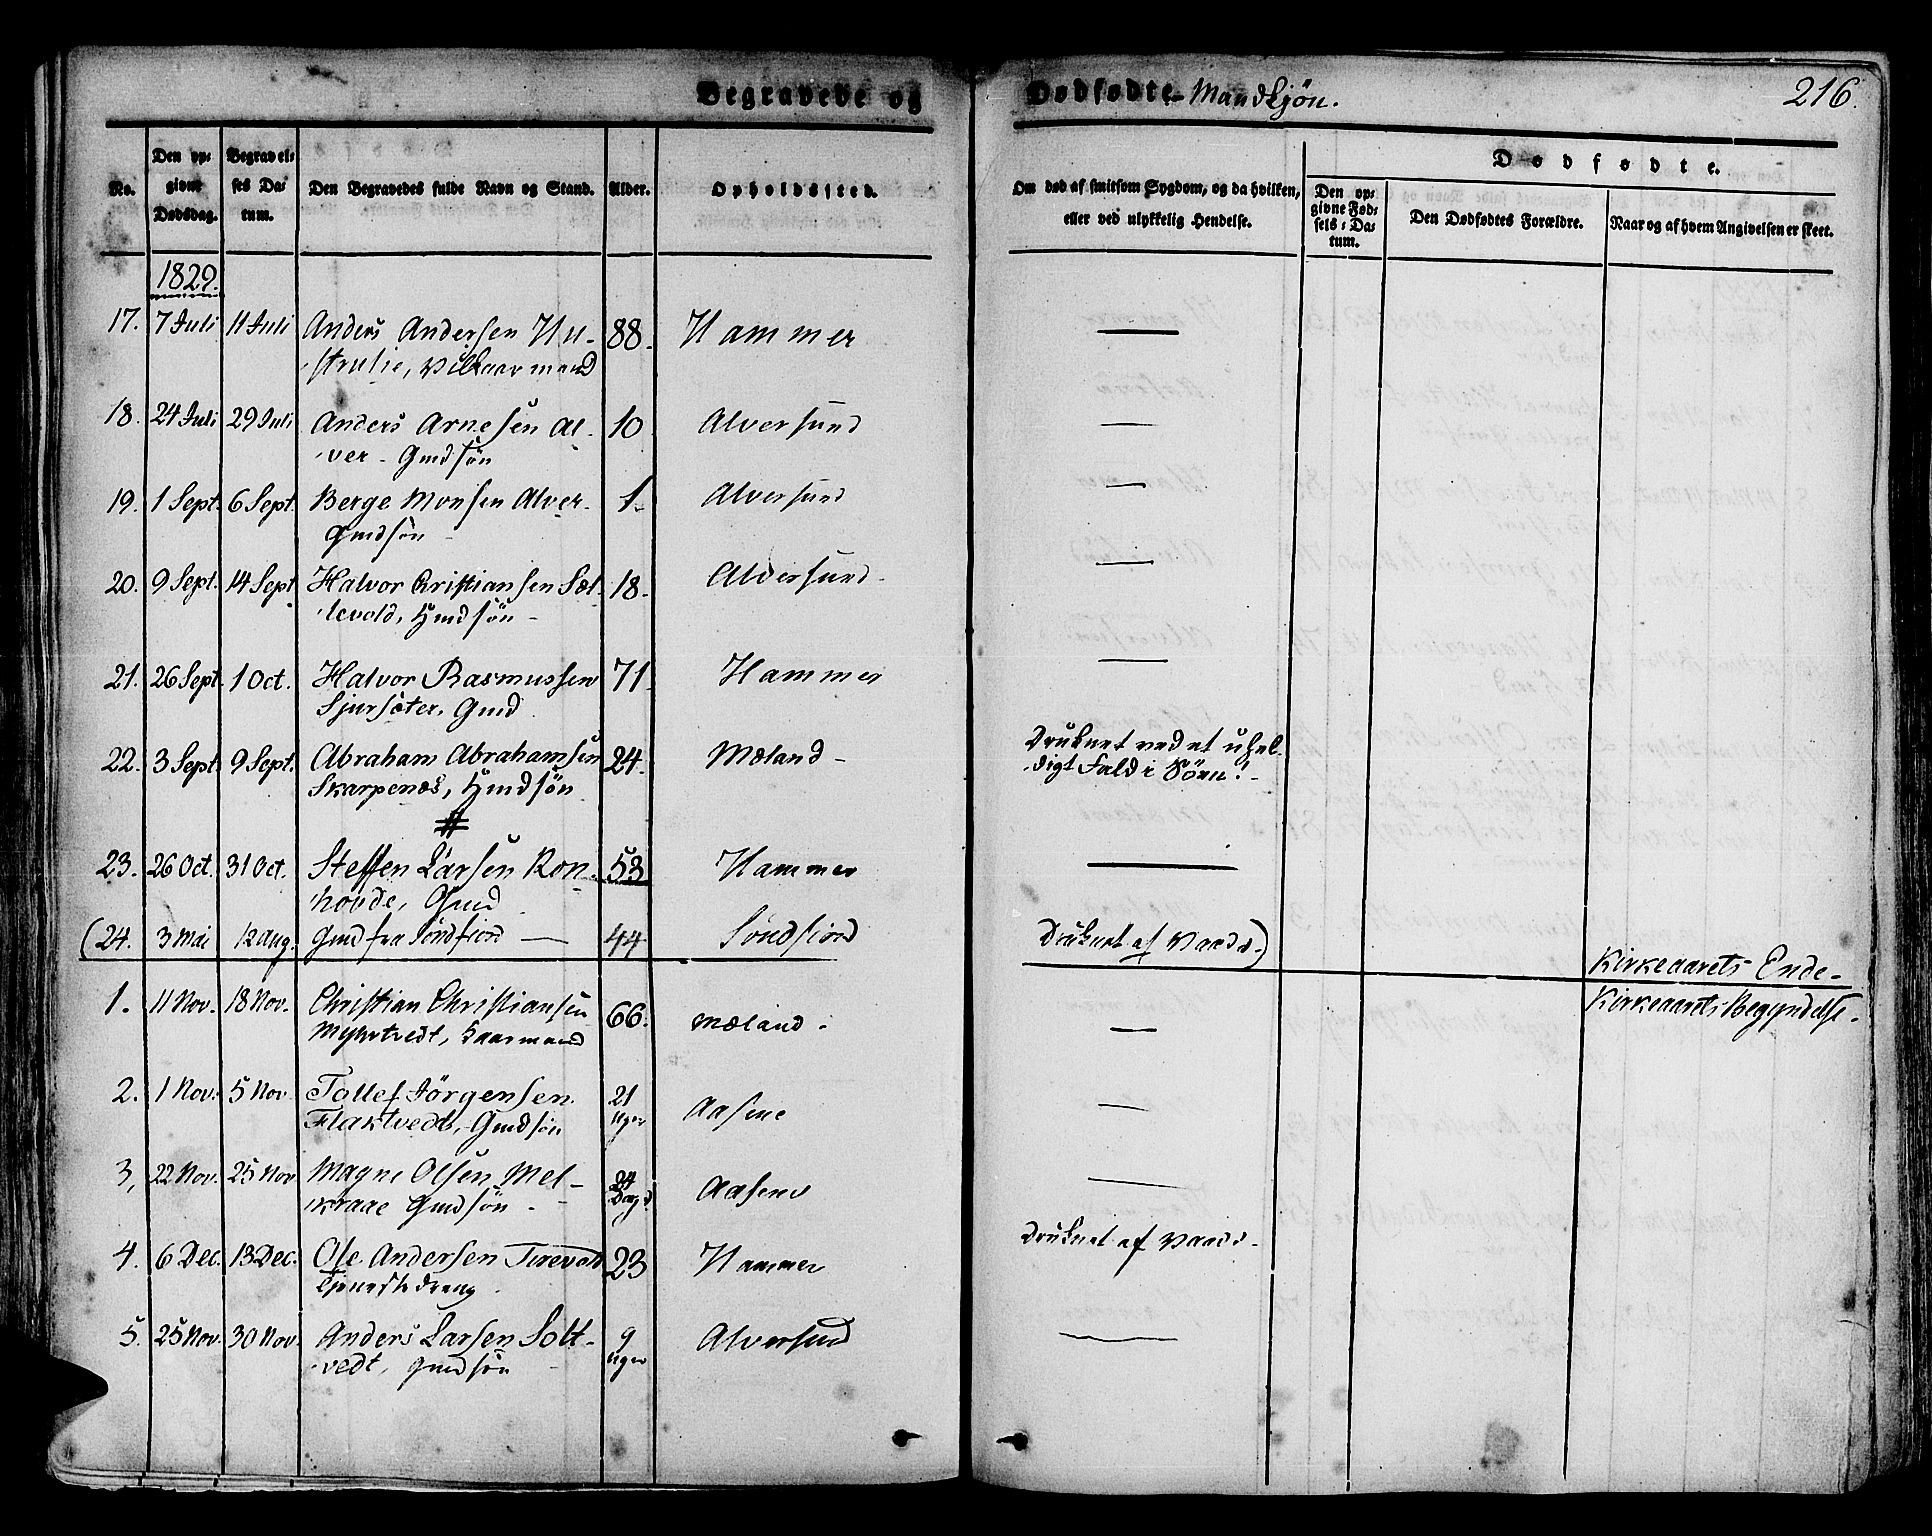 Begravede og Dødfødte - Mandkjøn. 216.
No. | Den opgivne Dødsdag. | Begravelses Datum. | Den Begravedes fulde Navn og Stand. | Alder. | Opholdssted. | Om død af smitsom Sygdom, og da hvilken, eller ved ulykkelig Hendelse. | Dødfødte. | Den opgivne Fødsels-Datum. | Den Dødfødtes Forældre. | Naar og af hvem Angivelsen er skeet.
1829.
17. 7 Juli 11 Juli Anders Andersen Hu- 88. Hammer —
, Vilkaarmand
18. 24 Juli 29 Juli Anders Arnesen Al- 10 Alversund —
ver - Gmdsøn
19. 1 Sept. 6 Sept. Berge Monsen Alver- 1. Alversund —
Gmdsøn -
20. 9 Sept. 14 Sept Halvor Christiansen Sæt- 18. Alversund. —
levold, Hmdsøn -
21. 26 Sept. 1 Oct. Halvor Rasmussen 71. Hammer —
Sjursæter. Gmd
22. 3 Sept. 9 Sept. Abraham Abrahamsen 24. Mæland - Druknet ved et uhel-
Skarpenæs, Hmdsøn digt Fald i Söen! -
23. 26 Oct. 31 Oct. Steffen Larsen Ron- 53 Hammer —
hovde, Gmd
(24. 3 Mai 12 Aug. Gmd fra Söndfiord — 44 Söndfiord Druknet af Vaade.)
Kirkeaarets Ende-
Kirkeaarets Begyndelse.
1. 11 Nov. 18 Nov. Christian Christiansen 66. Mæland. —
Myhrtvedt, Kaarmand
2. 1 Nov. 5 Nov. Tollef Jörgensen 21 Uger Aasene —
Flaktvedt, Gmdsøn
3, 22 Nov. 25 Nov Magne Olsen Mel- 24 Dage Aasene —
kraae Gmdsøn. -
4. 6 Dec. 13 Dec. Ole Andersen Tirevold 23 Hammer Druknet af Vaade.
Tjenestedreng.
5. 25 Nov. 30 Nov. Anders Larsen Solt- 9 Uger Alversund —
vedt, Gmdsøn